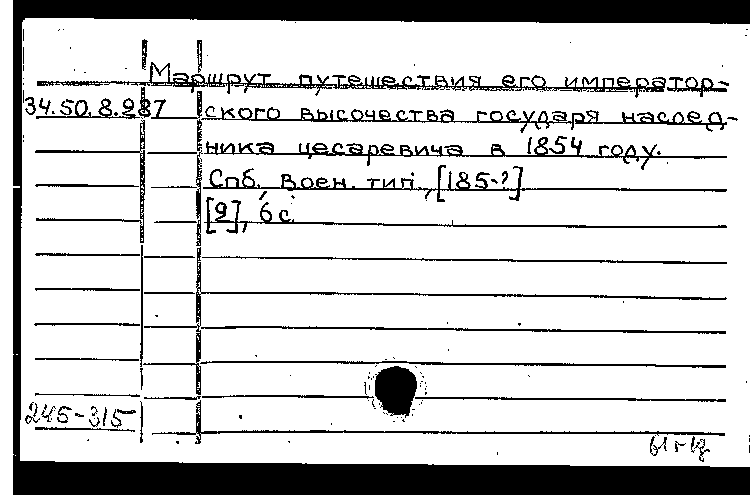 Маршрут путешествия его император-
34.50.8.987 ского высочества государя наслед-
ника цесаревича в 1854 году.
Спб., Воен. тип., [185-?]
[9], 6 с.
245-315